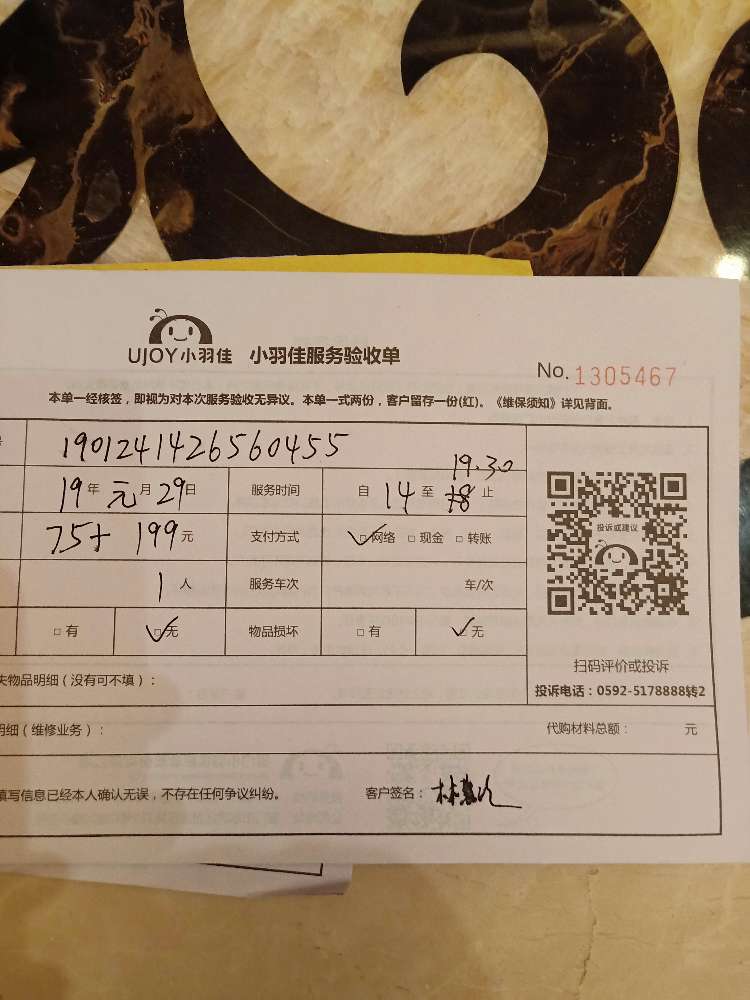 UJOY小羽佳 小羽佳服务验收单
No. 1305467
本单一经核签，即视为对本次服务验收无异议。本单一式两份，客户留存一份(红)。《维保须知》详见背面。
1901241426560455
19年元月29日 服务时间 自14至18止 19.30
75+ 199元 支付方式 ☑网络 □现金 □转账
1人 服务车次 车/次
□有 ☑无 物品损坏 □有 ☑无
投诉或建议
扫码评价或投诉
投诉电话：0592-5178888转2
失物品明细（没有可不填）：
明细（维修业务）： 代购材料总额： 元
填写信息已经本人确认无误，不存在任何争议纠纷。 客户签名：